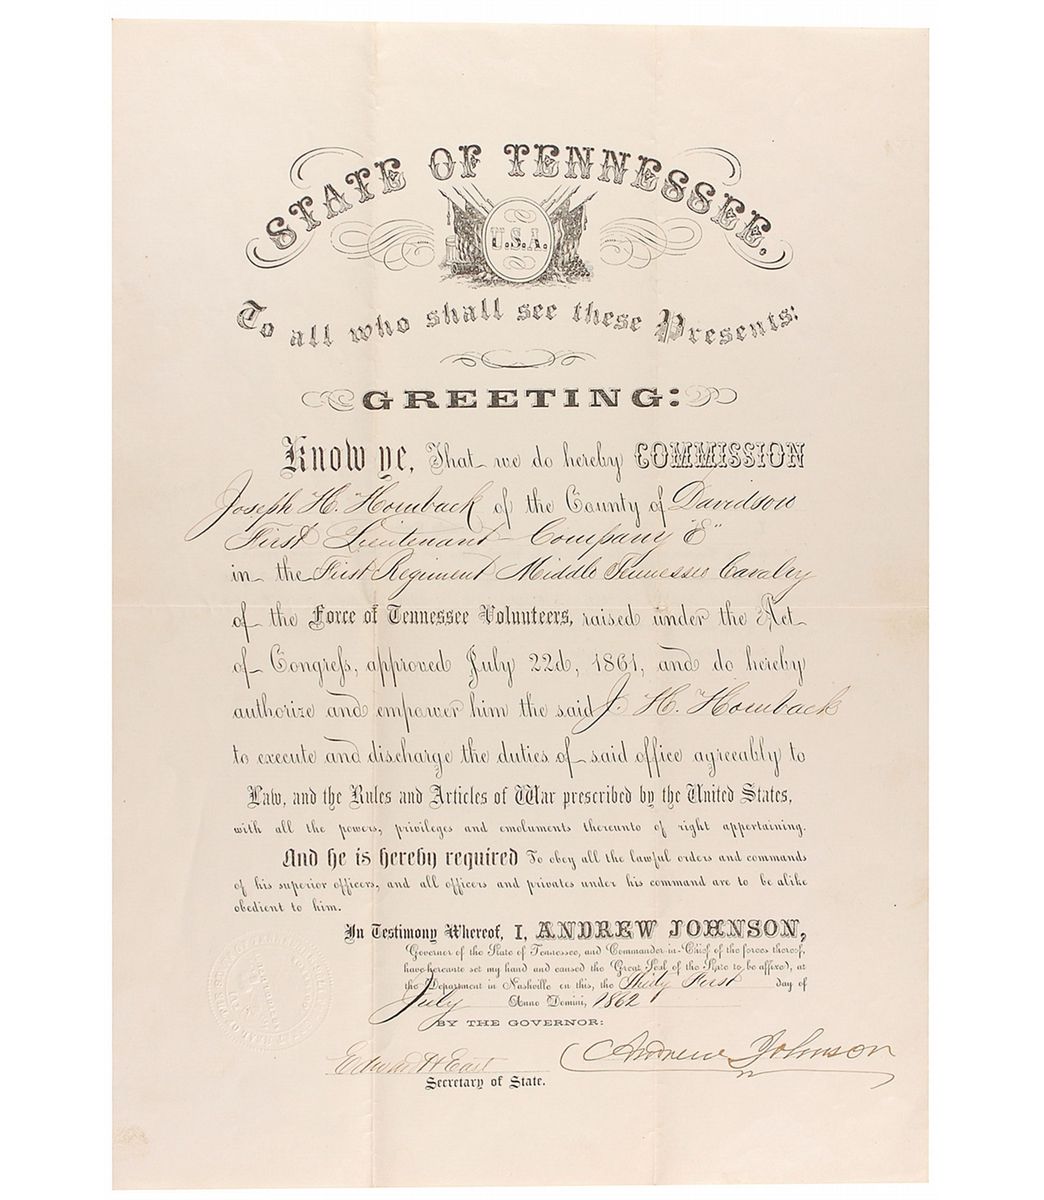 STATE OF TENNESSEE.
U.S.A.
To all who shall see these Presents:
GREETING:
Know ye, That we do hereby COMMISSION
Joseph H. Hornback of the County of Davidson
First Lieutenant Company "E"
in the First Regiment Middle Tennessee Cavalry
of the Force of Tennessee Volunteers, raised under the Act
of Congress, approved July 22d, 1861, and do hereby
authorize and empower him the said J. H. Hornback
to execute and discharge the duties of said office agreeably to
Law, and the Rules and Articles of War prescribed by the United States,
with all the powers, privileges and emoluments thereunto of right appertaining.
And he is hereby required To obey all the lawful orders and commands
of his superior officers, and all officers and privates under his command are to be alike
obedient to him.
In Testimony Whereof, I, ANDREW JOHNSON,
Governor of the State of Tennessee, and Commander-in-Chief of the forces thereof,
have hereunto set my hand and caused the Great Seal of the State to be affixed, at
the Department in Nashville on this, the Thirty First day of
July Anno Domini, 1862
BY THE GOVERNOR:
Edward H East
Andrew Johnson
Secretary of State.